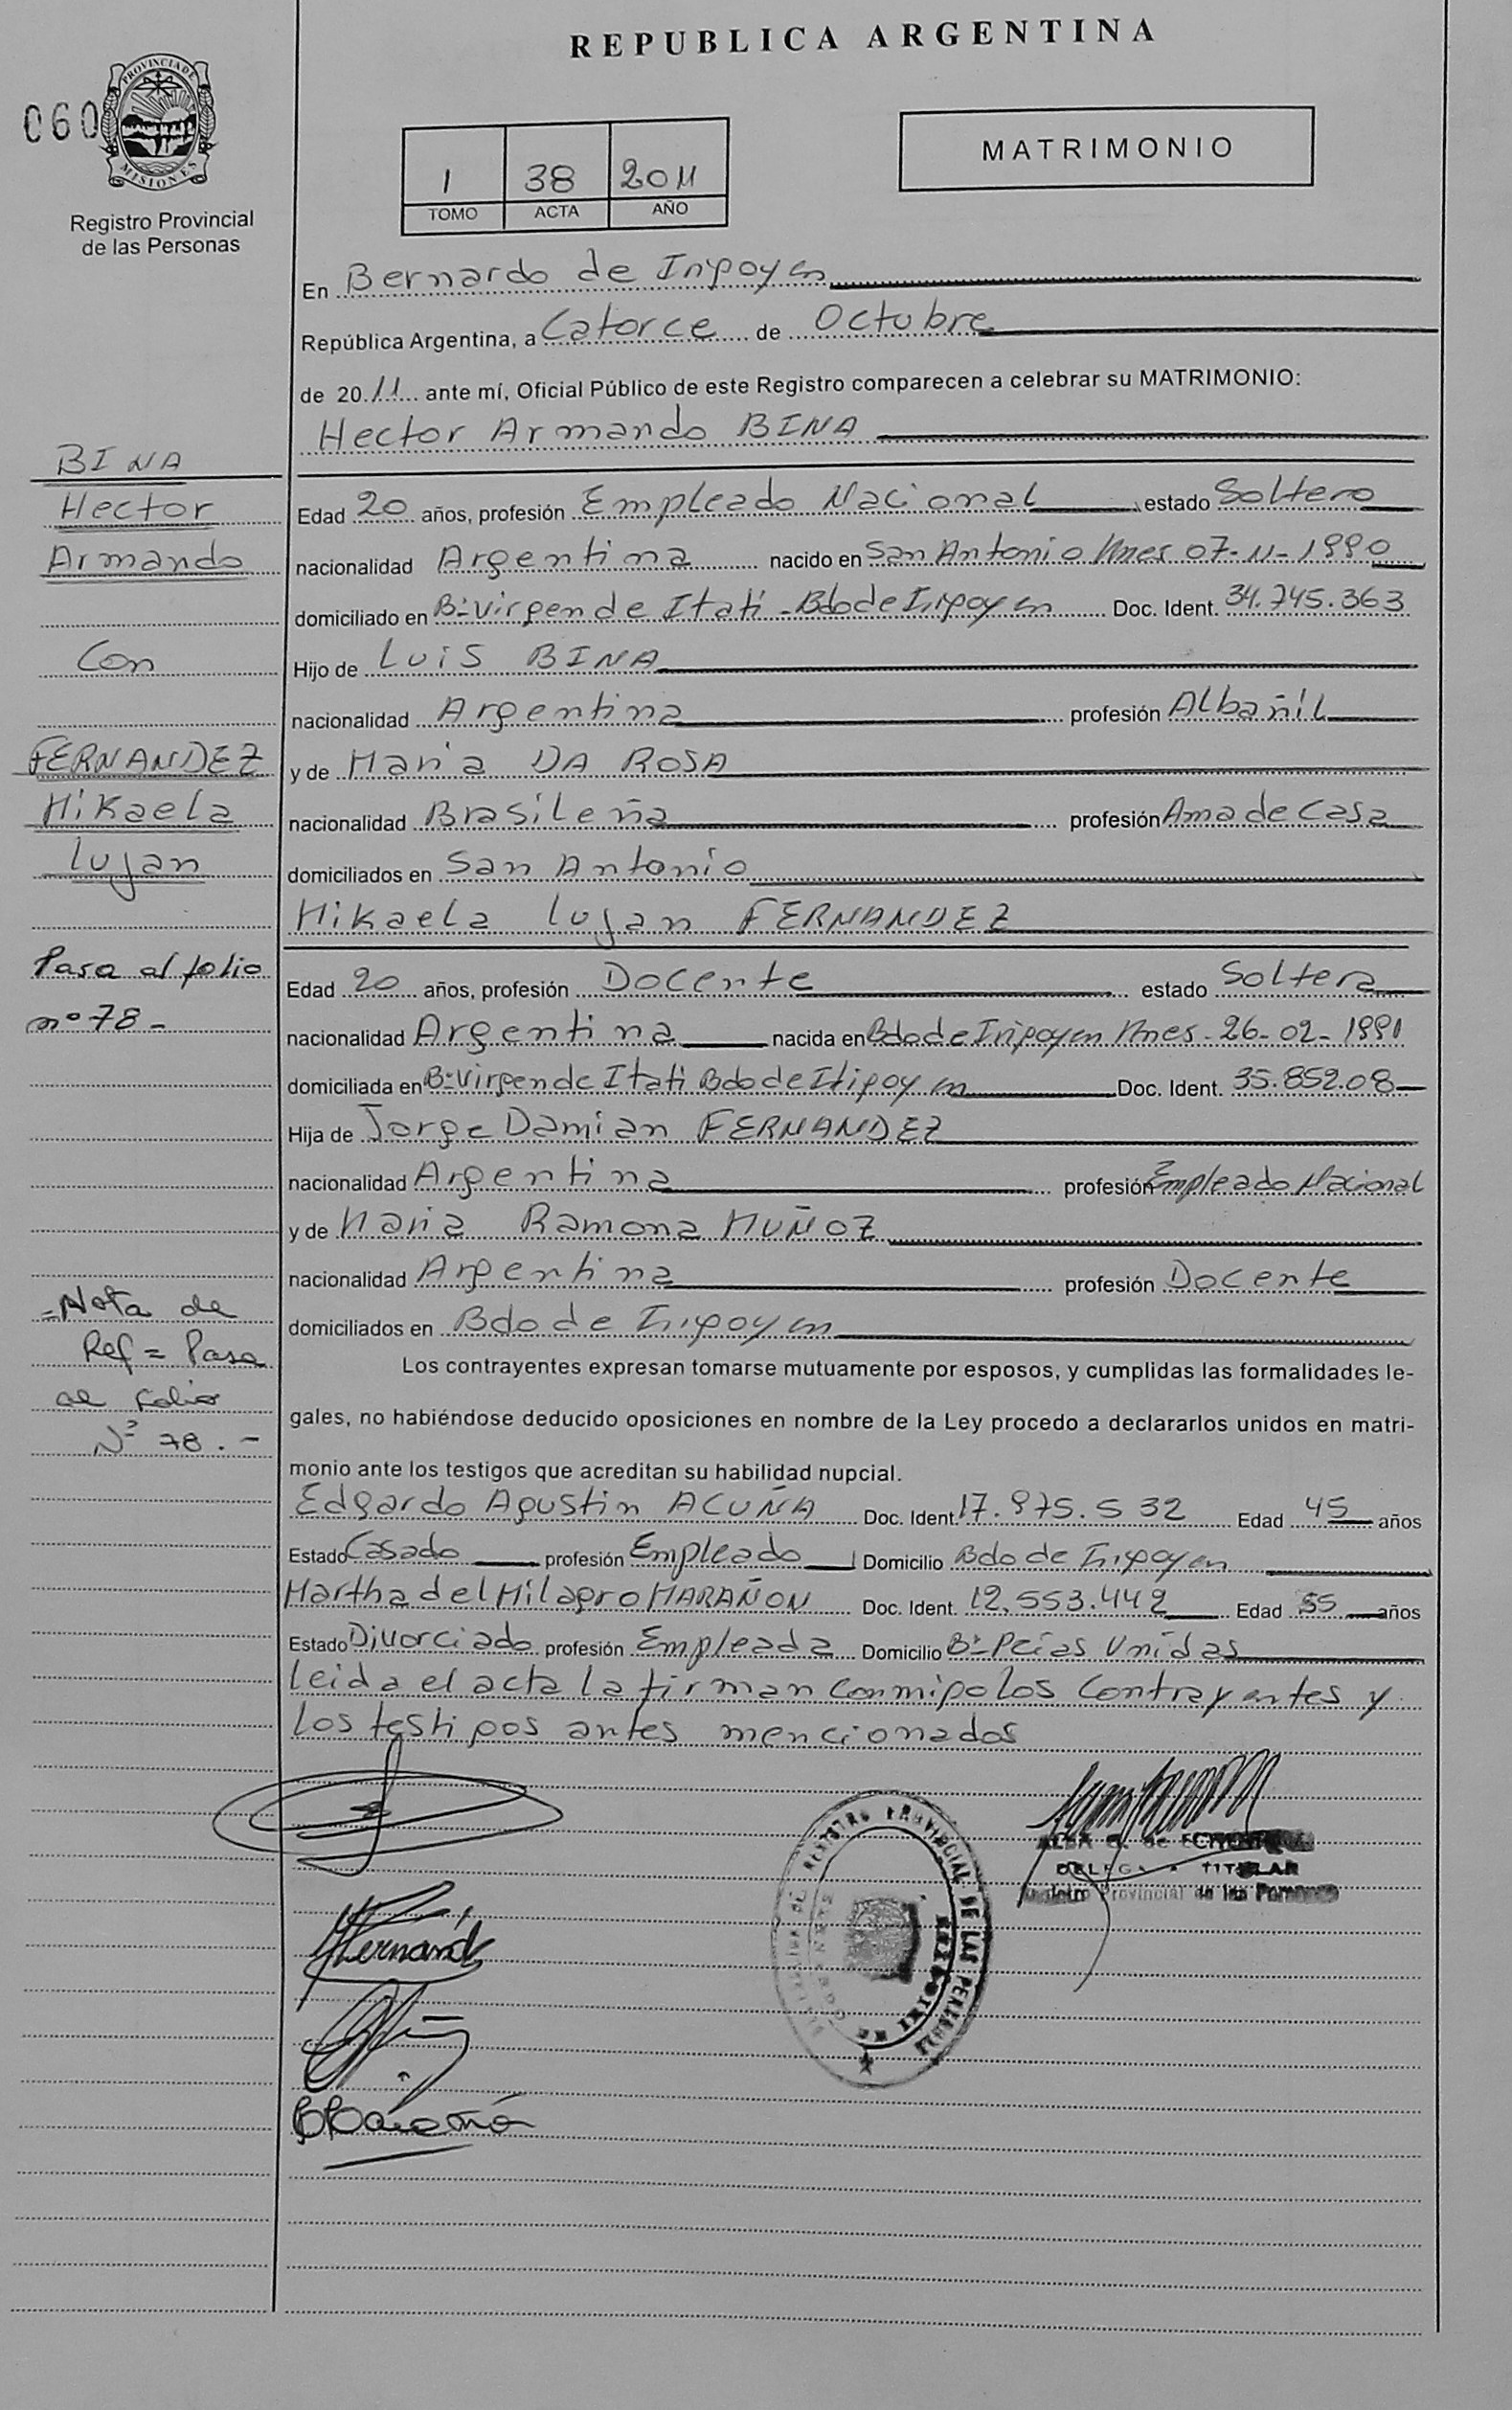 REPUBLICA ARGENTINA
060
PROVINCIA DE MISIONES
Registro Provincial
de las Personas
1 38 2011
TOMO ACTA AÑO
MATRIMONIO
En Bernardo de Irigoyen
República Argentina, a Catorce de Octubre
de 2011 ante mí, Oficial Público de este Registro comparecen a celebrar su MATRIMONIO:
Hector Armando BINA
Edad 20 años, profesión Empleado Nacional estado Soltero
nacionalidad Argentina nacido en San Antonio Mnes 07-11-1990
domiciliado en Bº Virgen de Itatí - Bdo de Irigoyen Doc. Ident. 34.745.363
Hijo de Luis BINA
nacionalidad Argentina profesión Albañil
y de Maria DA ROSA
nacionalidad Brasileña profesión Ama de Casa
domiciliados en San Antonio
Mikaela Lujan FERNANDEZ
Edad 20 años, profesión Docente estado Soltera
nacionalidad Argentina nacida en Bdo de Irigoyen Mnes - 26-02-1991
domiciliada en Bº Virgen de Itati Bdo de Irigoyen Doc. Ident. 35.852.08
Hija de Jorge Damian FERNANDEZ
nacionalidad Argentina profesión Empleado Nacional
y de Maria Ramona MUÑOZ
nacionalidad Argentina profesión Docente
domiciliados en Bdo de Irigoyen
Los contrayentes expresan tomarse mutuamente por esposos, y cumplidas las formalidades le-
gales, no habiéndose deducido oposiciones en nombre de la Ley procedo a declararlos unidos en matri-
monio ante los testigos que acreditan su habilidad nupcial.
Edgardo Agustin ACUÑA Doc. Ident. 17.975.532 Edad 45 años
Estado Casado profesión Empleado Domicilio Bdo de Irigoyen
Martha del Milagro MARAÑON Doc. Ident. 12.553.442 Edad 55 años
Estado Divorciado profesión Empleada Domicilio Bº Pcias Unidas
leida el acta la firman conmigo los Contrayentes y
los testigos antes mencionados
BINA
Hector
Armando
Con
FERNANDEZ
Mikaela
Lujan
Pasa al folio
nº 78 -
= Nota de
Ref = Pasa
al folio
Nº 78. -
REGISTRO PROVINCIAL DE LAS PERSONAS
MISIONES
DELEGADA TITULAR
Registro Provincial de las Personas